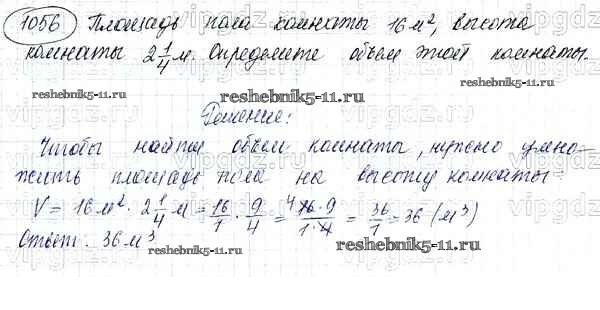 1056 Площадь пола комнаты 16 м², высота
комнаты 2 1/4 м. Определите объем этой комнаты.
reshebnik5-11.ru
reshebnik5-11.ru
Решение:
Чтобы найти объем комнаты, нужно умно-
жить площадь пола на высоту комнаты:
V = 16 м² · 2 1/4 м = 16/1 · 9/4 = 16·9/1·4 = 36/1 = 36 (м³)
Ответ: 36 м³
reshebnik5-11.ru
reshebnik5-11.ru